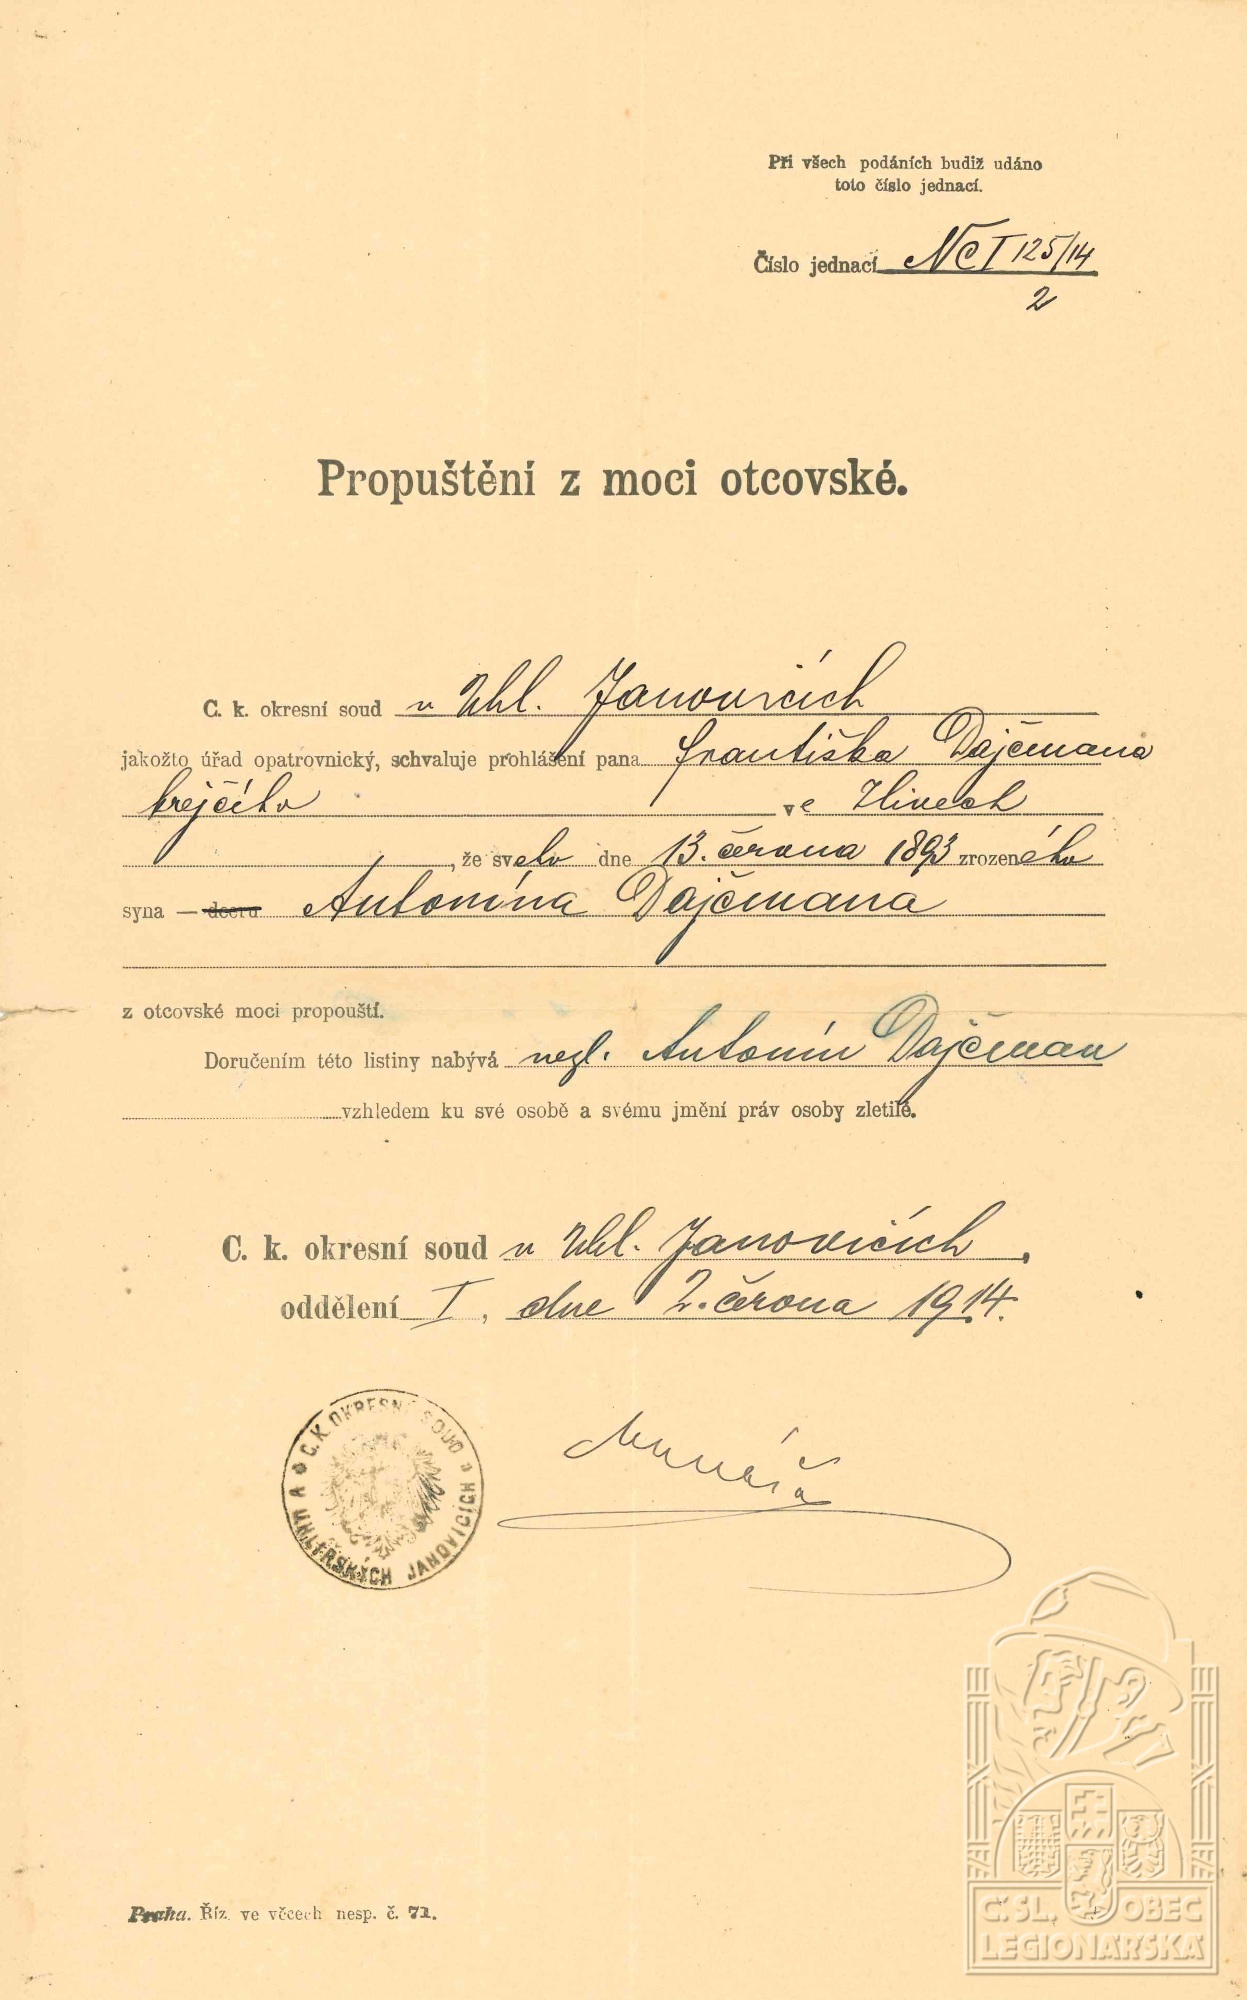 Při všech podáních budiž udáno
toto číslo jednací.
Číslo jednací Nc I 125/14
2
Propuštění z moci otcovské.
C. k. okresní soud v Uhl. Janovicích
jakožto úřad opatrovnický, schvaluje prohlášení pana Františka Dajčmana
krejčího ve Zlivech
, že svého dne 13. června 1893 zrozeného
syna — dceru Antonína Dajčmana
z otcovské moci propouští.
Doručením této listiny nabývá nezl. Antonín Dajčman
vzhledem ku své osobě a svému jmění práv osoby zletilé.
C. k. okresní soud v Uhl. Janovicích,
oddělení I, dne 2. června 1914.
C. K. OKRESNÍ SOUD
V UHLÍŘSKÝCH JANOVICÍCH
Praha. Říz. ve věcech nesp. č. 71.
Č. SL. OBEC
LEGIONÁŘSKÁ